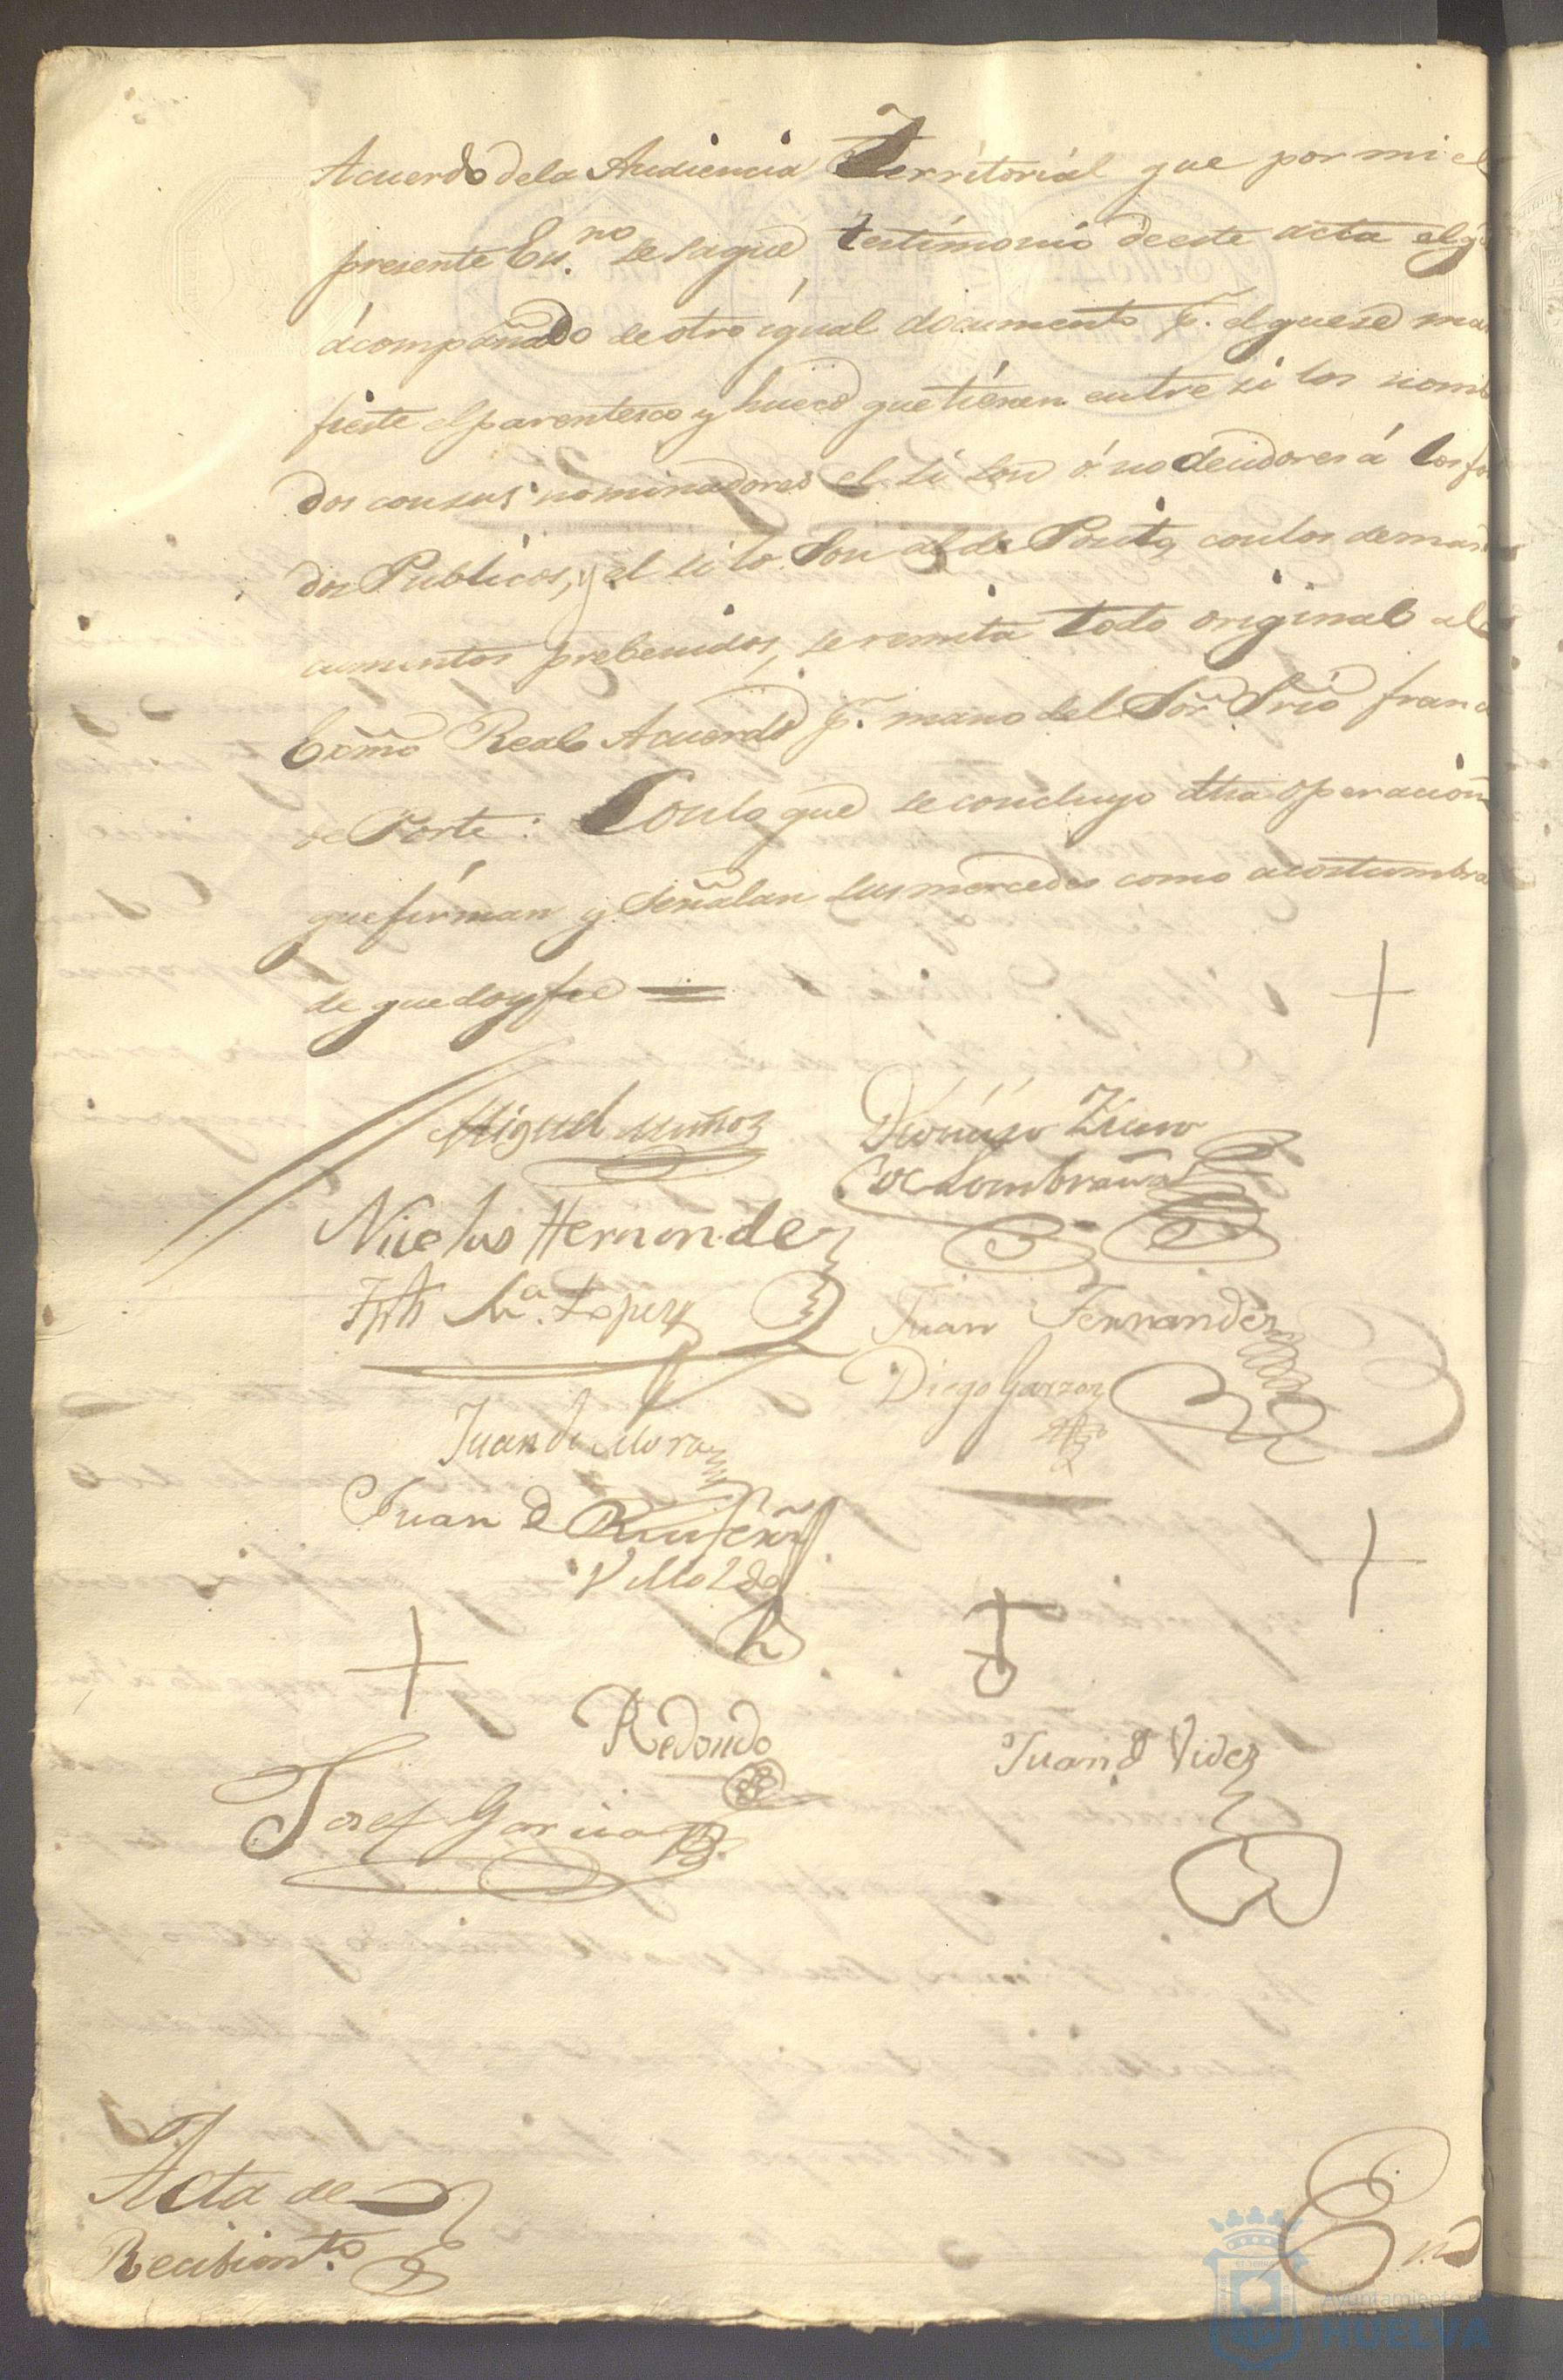 Acuerdo dela Audiencia Territorial que por mi el
presente Esno. se saque testimonio de este acta el q
acompañado de otro igual documento pr. el que se ma
fieste el parentesco y hueco que tienen entre si los nom
dos con sus nominadores el si son ó no deudores á los fo
dos Publicos, y el si lo son al de Posito, con los demas
cumentos prebenidos, se remita todo original al
Exmo Real Acuerdo pr. mano del Sor. Srio franc
de Porte: Conlo que se concluyo dha operacion
que firman y señalan sus mercedes como acostumbra
de que doy fee =
Miguel Muñoz
Dionisio
de Lombraña
Nicolas Hernandez
Ma. Lopez
Juan Fernandez
Diego Garzon
Juan de Mora
Juan de
Redondo
Juan d Videz
Josef Garcia
Acta de
Recibimto.
En
Ayuntamiento de
HUELVA